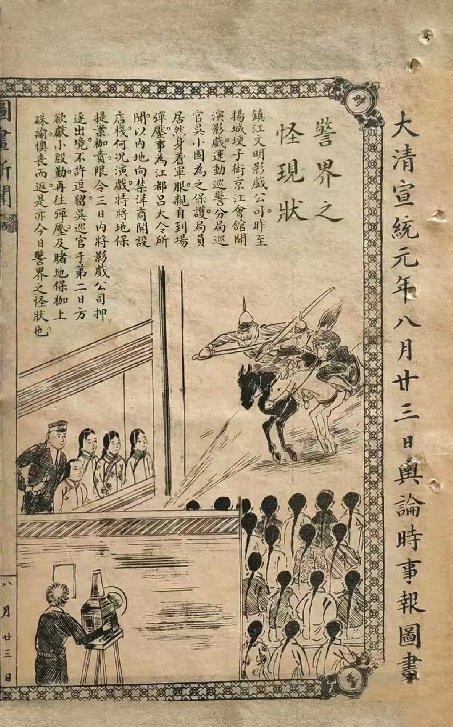 大清宣統元年八月廿三日輿論時事報圖畫
警界之
怪現狀
鎮江文明影戲公司。昨至
揚城埂子街京江會館開
演影戲運動巡警分局巡
官吳小園為之保護。局員
居然身着軍服。親自到場
彈壓。事為江都呂大令所
聞。以内地向禁洋商開設
店棧。何況演戲。特將地保
提案枷責。限令三日內將影戲公司押
逐出境。不許逗留。吳巡官于第二日方
欲獻小殷勤。再往彈壓。及睹地保枷上
硃諭。懊喪而返。是亦今日警界之怪狀也
圖畫新聞
八月廿三日